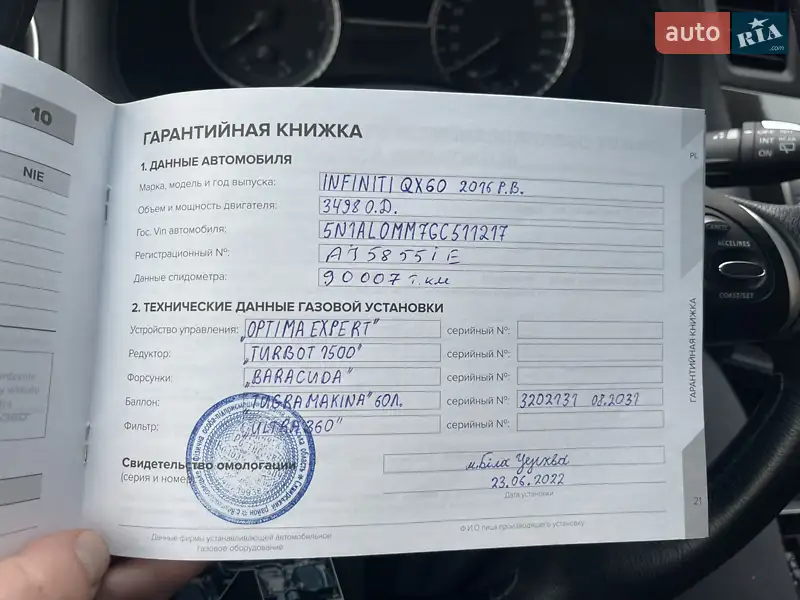 auto RIA .com
10
NIE
ГАРАНТИЙНАЯ КНИЖКА
1. ДАННЫЕ АВТОМОБИЛЯ
Марка, модель и год выпуска: INFINITI QX60 2016 Р.В.
Объем и мощность двигателя: 3498 О.Д.
Гос. Vin автомобиля: 5N1AL0MM7GC511217
Регистрационный №: AI5855IE
Данные спидометра: 90007 т.км
2. ТЕХНИЧЕСКИЕ ДАННЫЕ ГАЗОВОЙ УСТАНОВКИ
Устройство управления: „OPTIMA EXPERT" серийный №:
Редуктор: „TURBOT 1500" серийный №:
Форсунки: „BARACUDA" серийный №:
Баллон: „TUGRAMAKINA" 60Л. серийный №: 3202131 08.2031
Фильтр: „ULTRA 360" серийный №:
Свидетельство омологации
(серия и номер)
м.Біла Церква
23.06.2022
Дата установки
Данные фирмы устанавливающей автомобильное
газовое оборудование
Ф.И.О лица производящего установку
PL
ГАРАНТИЙНАЯ КНИЖКА
21
OFF
INT
ON
CANCEL
ACCEL/RES
COAST/SET